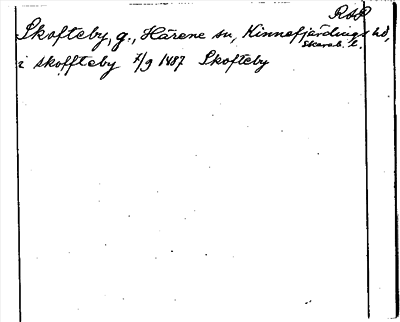 RAP
Skofteby, g., Härene sn, Kinnefjärdings hd,
Skarab. l.
i skoffteby 7/9 1487 Skofteby